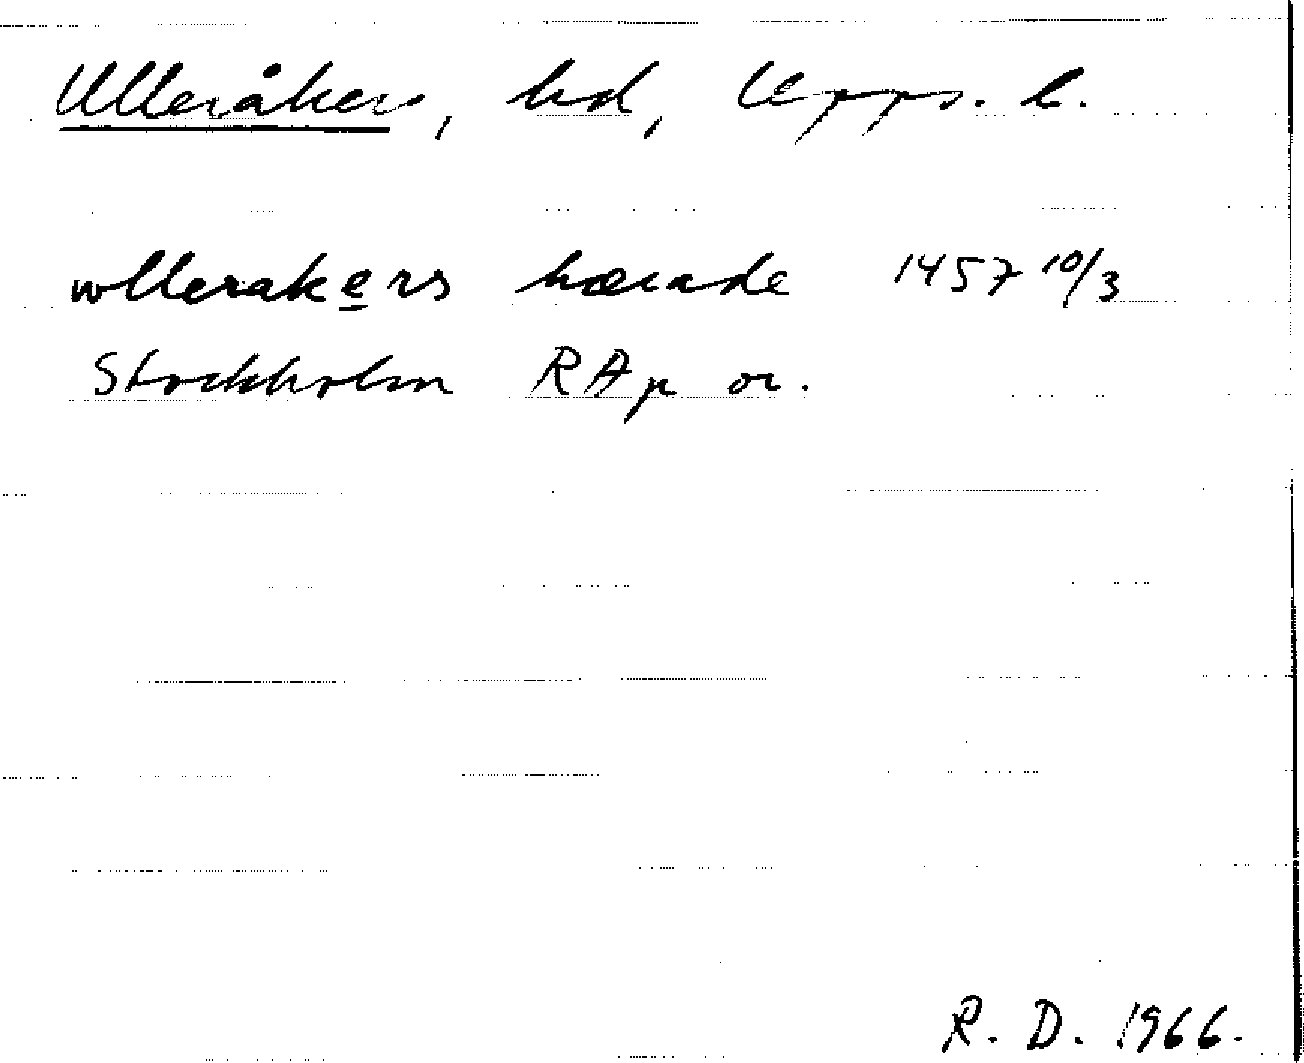 Ulleråkers, hd, Upps. l.
wllerakers hærade 1457 10/3
Stockholm RAp or.
R. D. 1966.